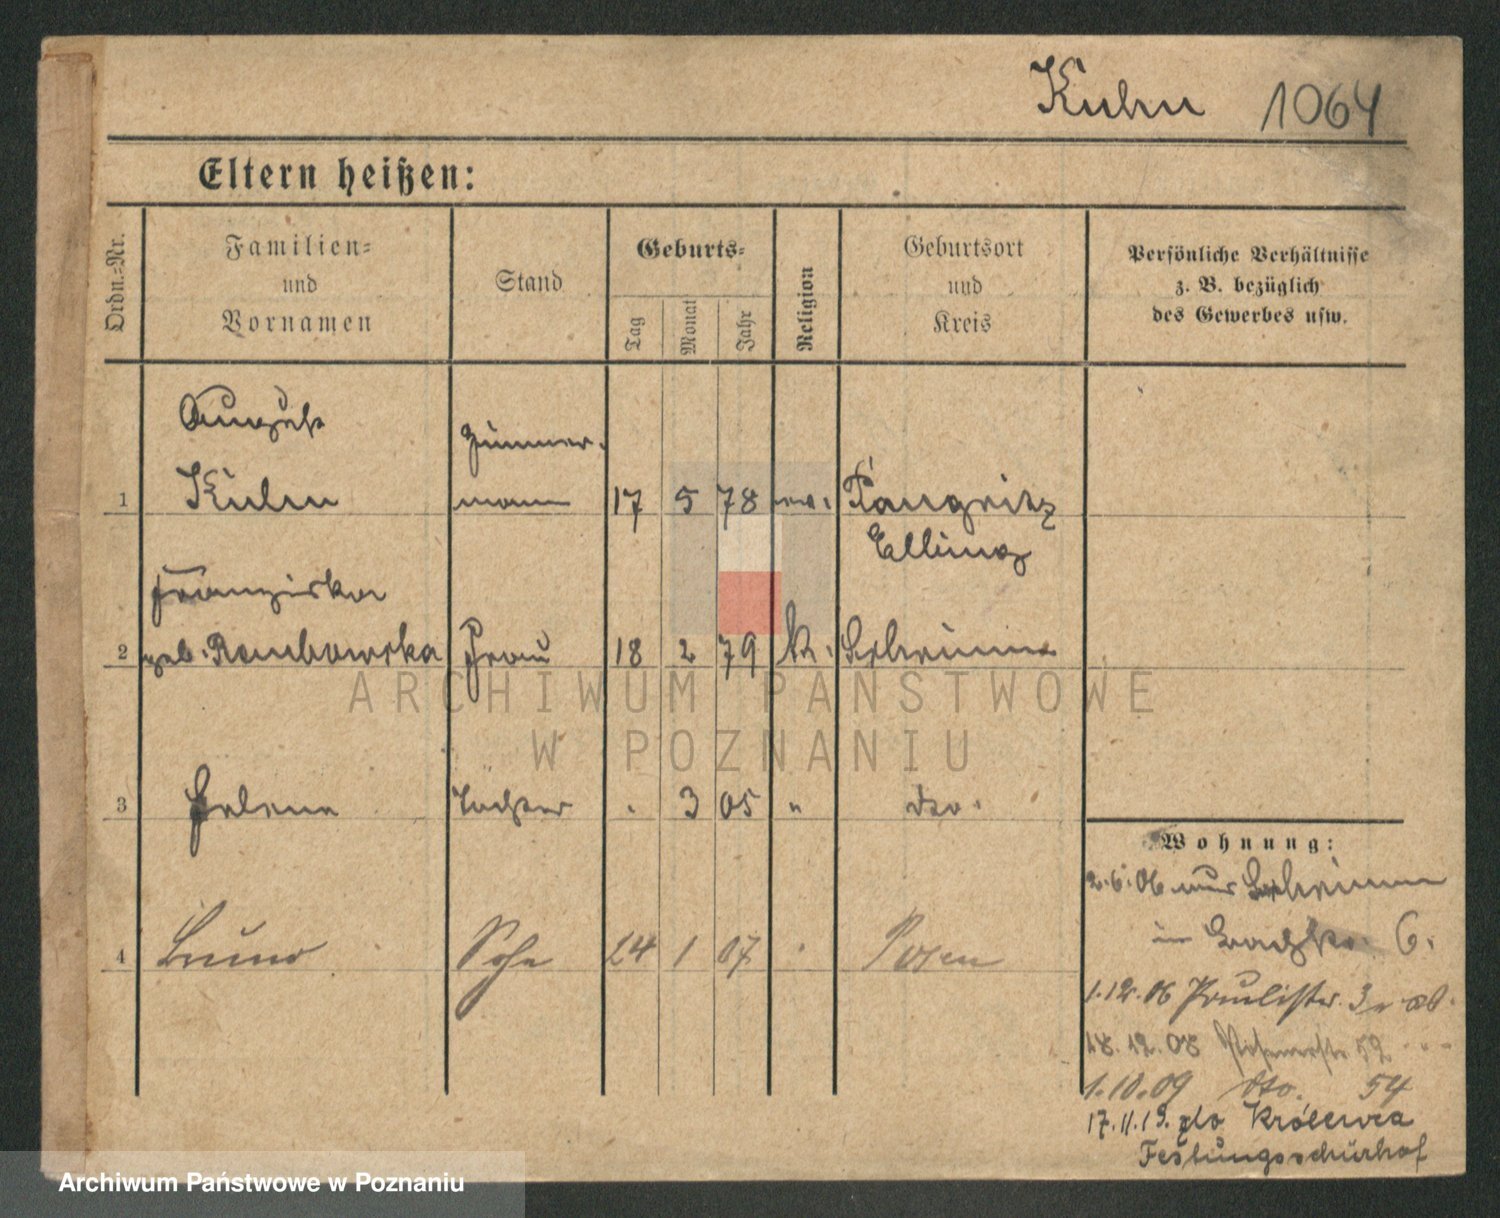 Kuhn 1064
Eltern heißen:
Ordn.=Nr.
Familien=
und
Vornamen
Stand
Geburts=
Tag
Monat
Jahr
Religion
Geburtsort
und
Kreis
Persönliche Verhältnisse
z. B. bezüglich
des Gewerbes usw.
August
Zimmer-
1 Kuhn mann 17 5 78 ev. Pangritz
Elbing
Franziska
2 geb. Rembowska Frau 18 2 79 k. Schrimm
ARCHIWUM PAŃSTWOWE
W POZNANIU
3 Helene Tochter . 3 05 " dto.
4 Bruno Sohn 24 1 07 . Posen
Wohnung:
2.6.06 aus Schrimm
in 6.
1.12.06 3
18.12.08 Posenerstr 52
1.10.09 dto. 54
17.11.19. do Królewca
Festungsschirrhof
Archiwum Państwowe w Poznaniu